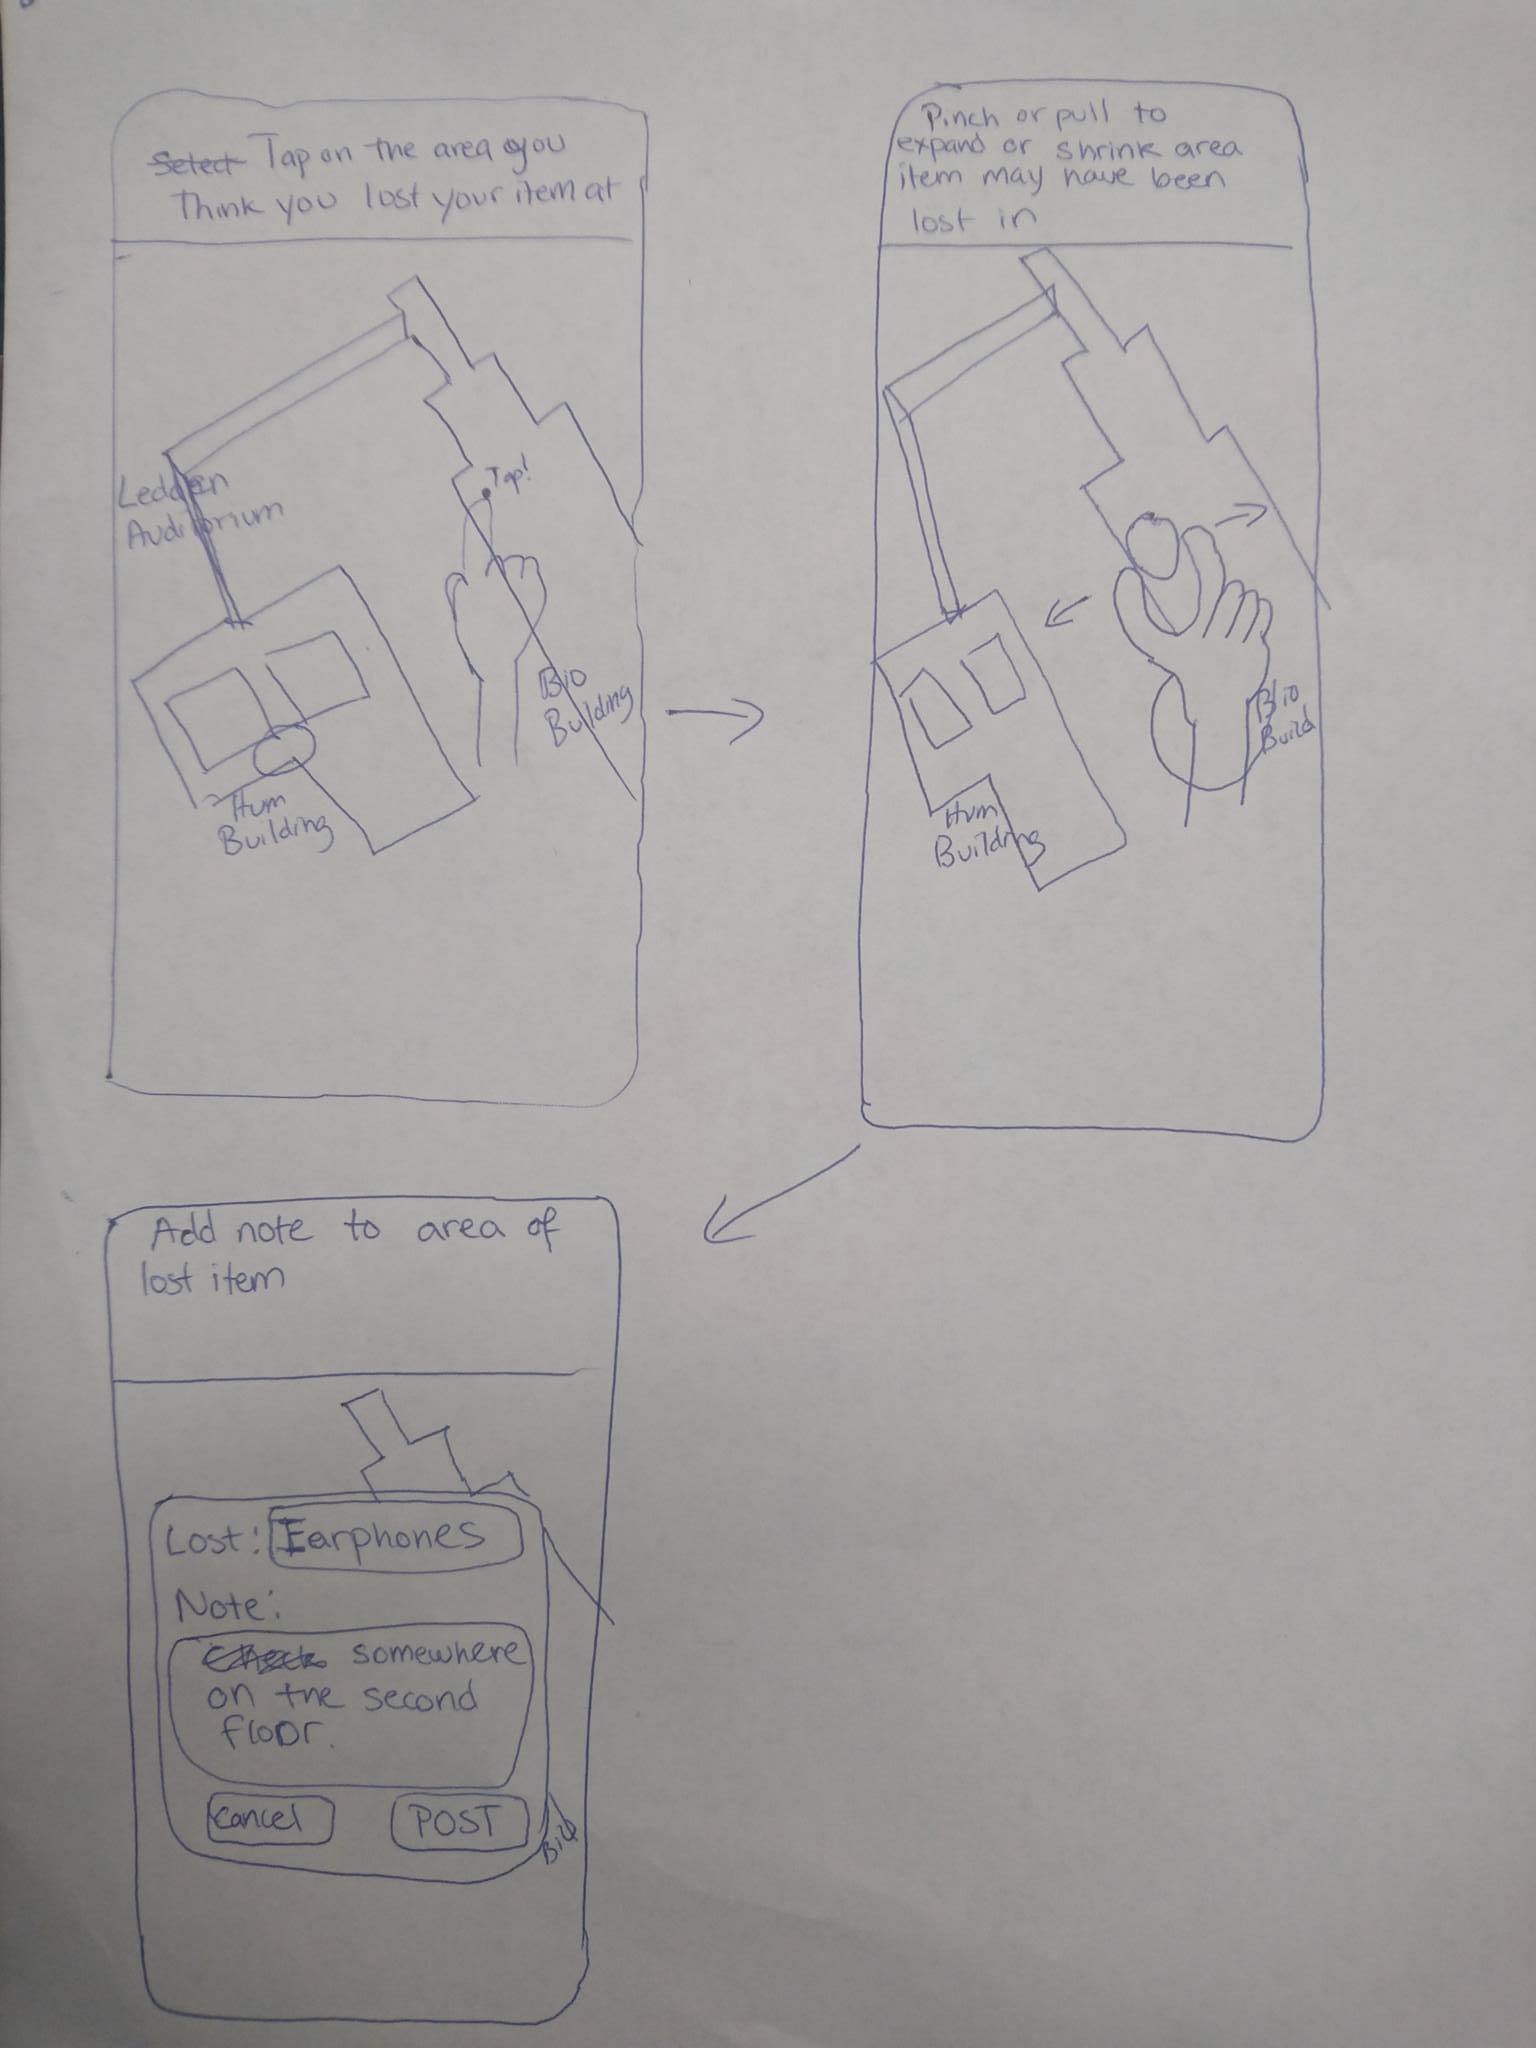 Select Tap on the area you
Think you lost your item at
Tap!
Ledden
Auditorium
Bio
Building
Hum
Building
Pinch or pull to
expand or shrink area
item may have been
lost in
Bio
Build
Hum
Building
Add note to area of
lost item
Lost: Earphones
Note:
Check somewhere
on the second
floor.
Cancel
POST